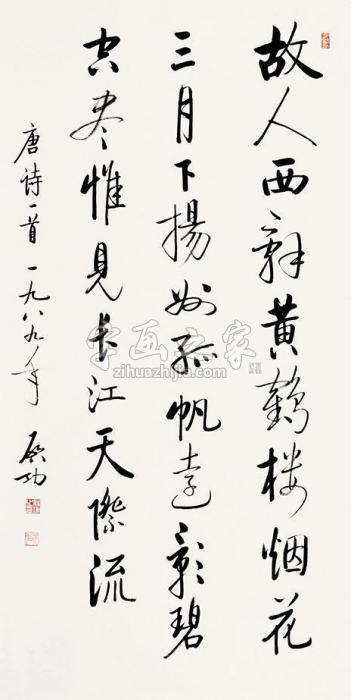 故人西辞黄鹤楼烟花
三月下揚州孤帆遠影碧
空尽惟見长江天際流
唐诗一首 一九八九年 启功
字画之家
zihuazhijia.com